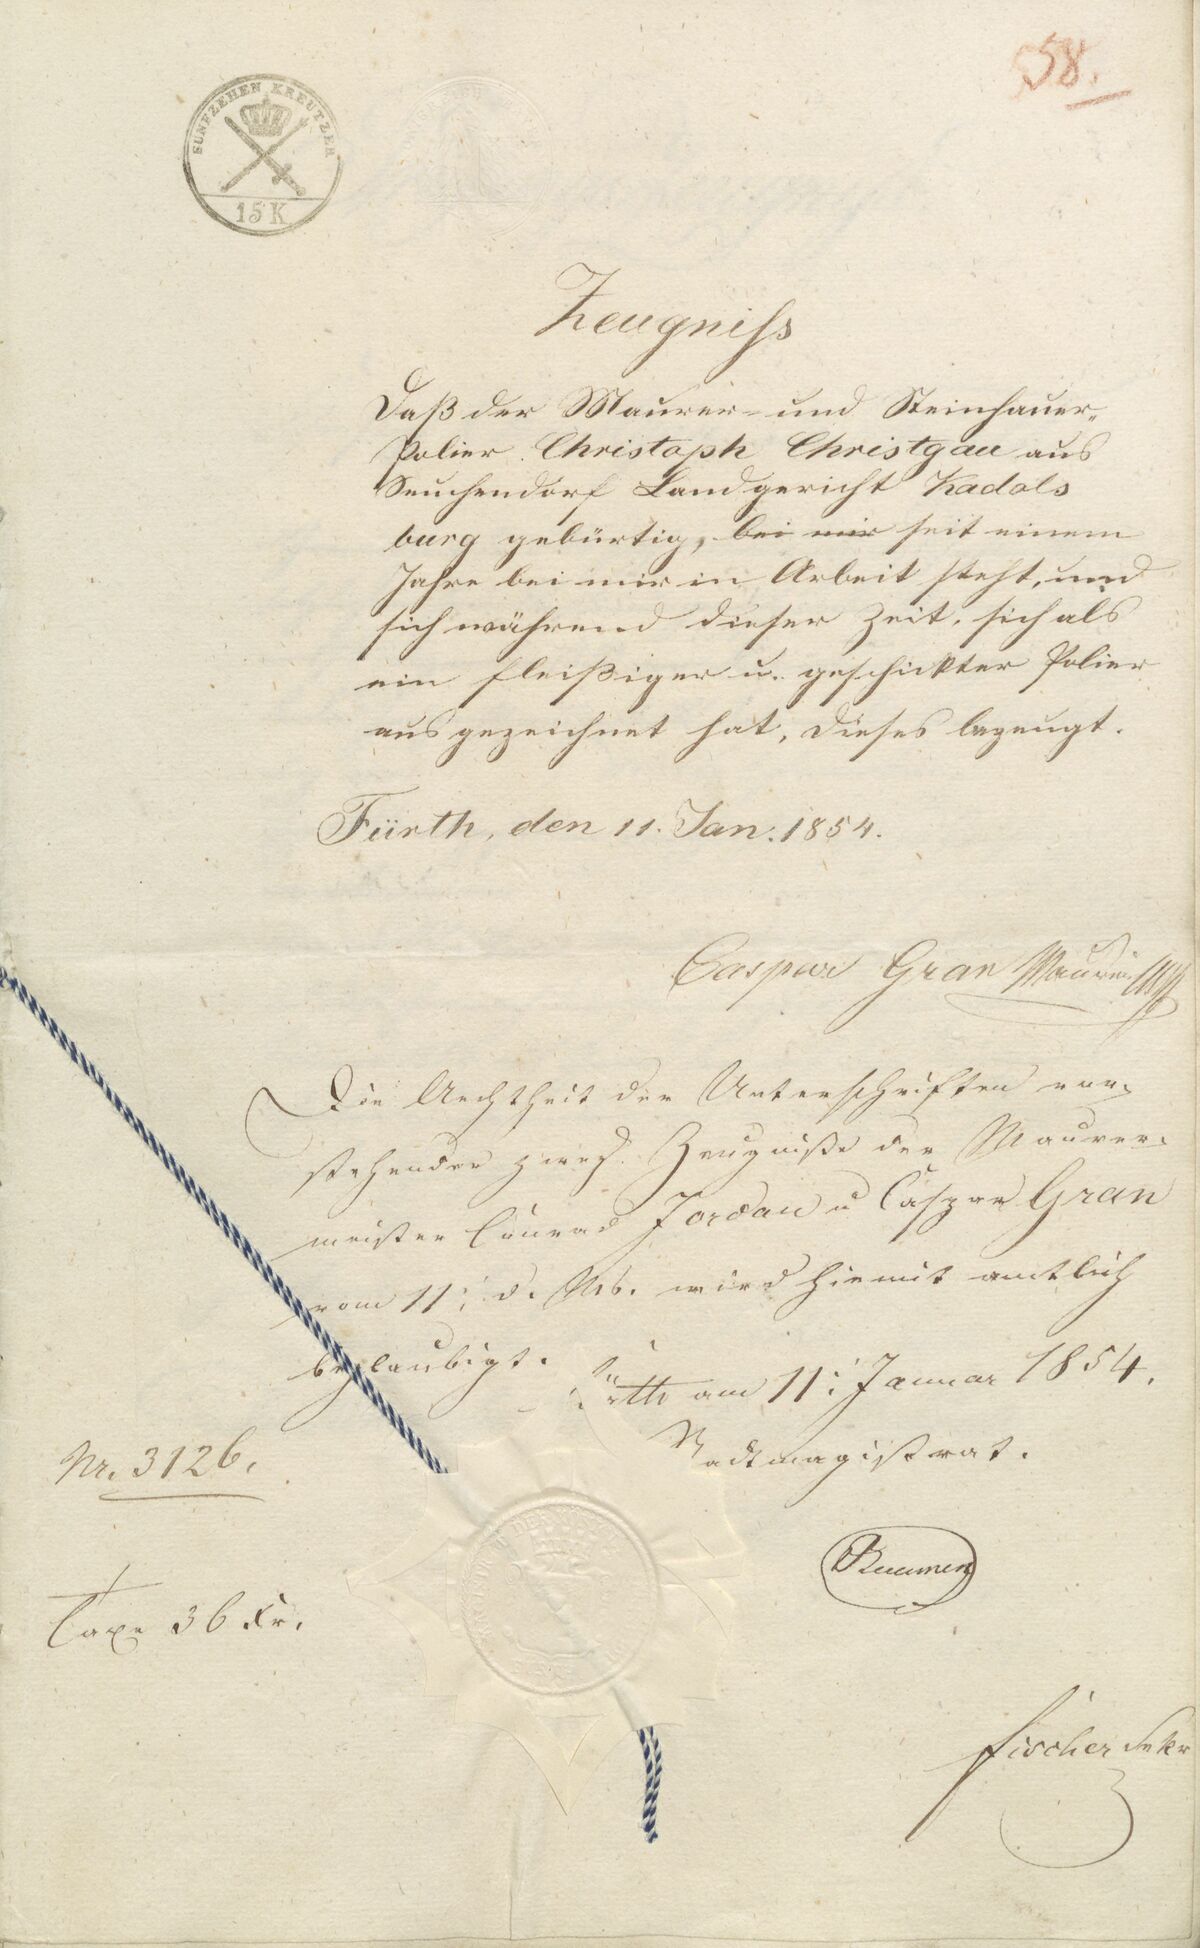 58.
FÜNFZEHEN KREUTZER
15 K
Zeugniss
Daß der Maurer- und Steinhauer-
Polier Christoph Christgau aus
Seuchendorf Landgericht Kadols
burg gebürtig, bei mir seit einem
Jahre bei mir in Arbeit steht, und
sich während dieser Zeit, sich als
ein fleißiger u. geschickter Polier
ausgezeichnet hat, dieses bezeugt.
Fürth, den 11. Jan. 1854.
Caspar Gran Maurer
Die Aechtheit der Unterschriften vor-
stehender zwey Zeugniße der Maurer-
meister Conrad Jordan u Caspar Gran
vom 11. d. Mts. wird hiemit amtlich
beglaubigt.
Fürth am 11. Januar 1854.
Stadtmagistrat.
Nr. 3126.
Taxe 36 Kr.
Fischer Sekr